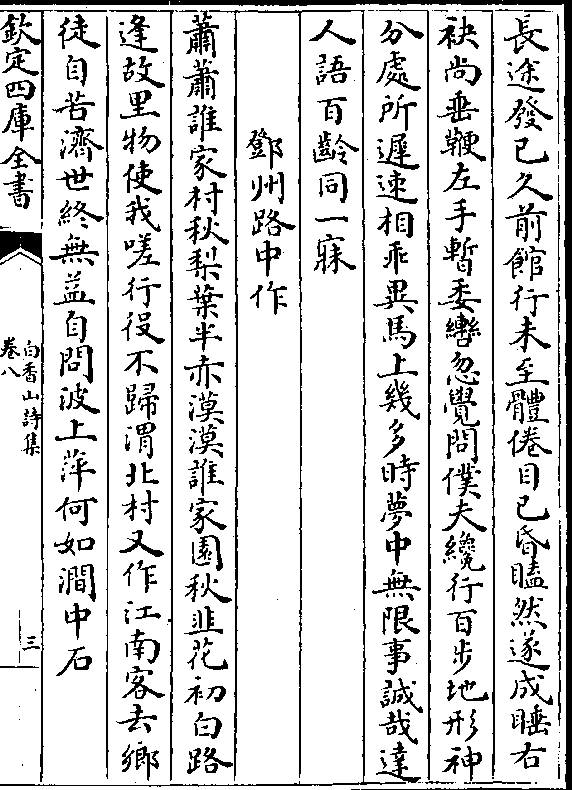 長途發已久前館行未至體倦目已昏瞌然遂成睡右
袂尚垂鞭左手暫委轡忽覺問僕夫纔行百步地形神
分處所遲速相乖異馬上幾多時夢中無限事誠哉達
人語百齡同一寐
鄧州路中作
蕭蕭誰家村秋梨葉半赤漠漠誰家園秋韭花初白路
逢故里物使我嗟行役不歸渭北村又作江南客去鄉
徒自苦濟世終無益自問波上萍何如澗中石
欽定四庫全書
白香山詩集
卷八
三